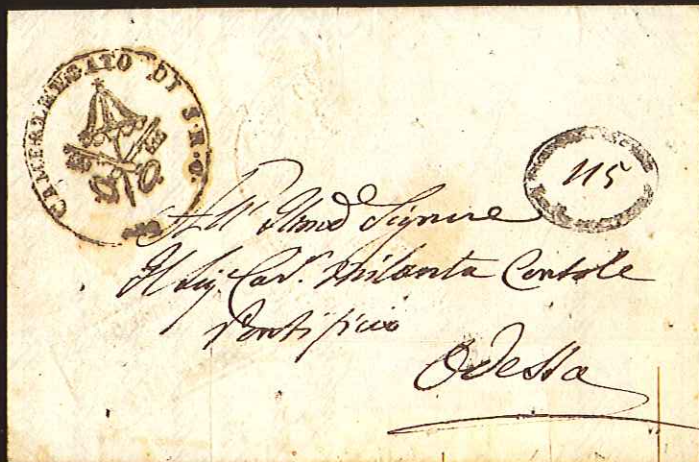 CAMERLENGATO DI S. R. C.
115
All' Illmo Signore
Il Sig. Cav. Milanta Console
Pontificio
Odessa